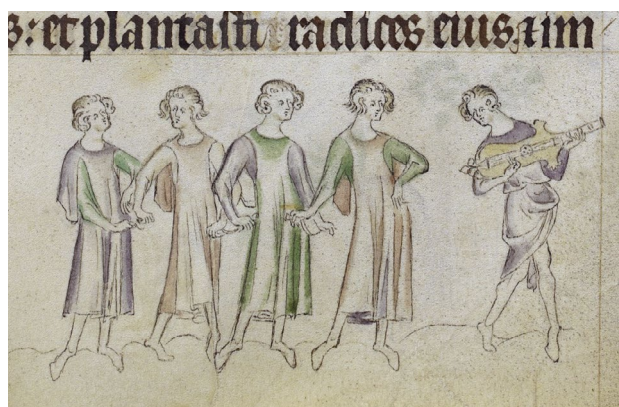 s: et plantasti radices eius. ⁊ im